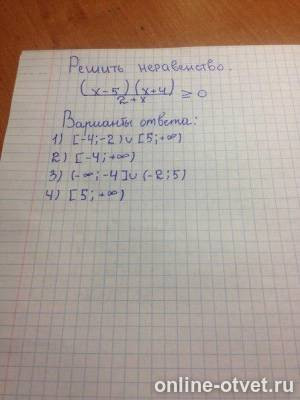 Решить неравенство.
(x-5)(x+4)
2+x
≥ 0
Варианты ответа:
1) [-4;-2) ∪ [5;+∞)
2) [-4;+∞)
3) (-∞;-4] ∪ (-2;5)
4) [5;+∞)
online-otvet.ru